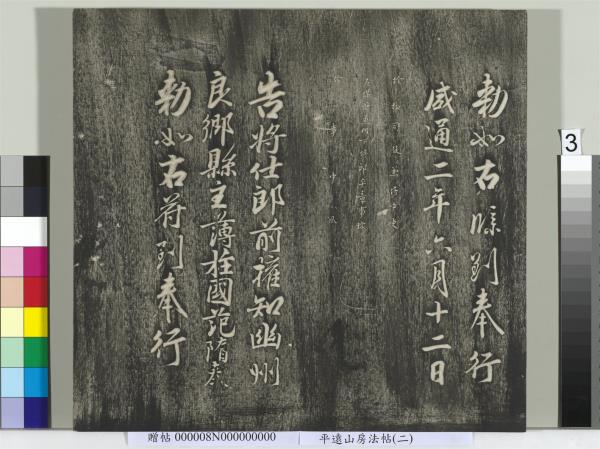 勅如右牒到奉行
咸通二年六月十二日
告將仕郎前權知幽州
良鄉縣主薄柱國范隋奉
勅如右符到奉行
3
贈帖 000008N000000000 平遠山房法帖(二)